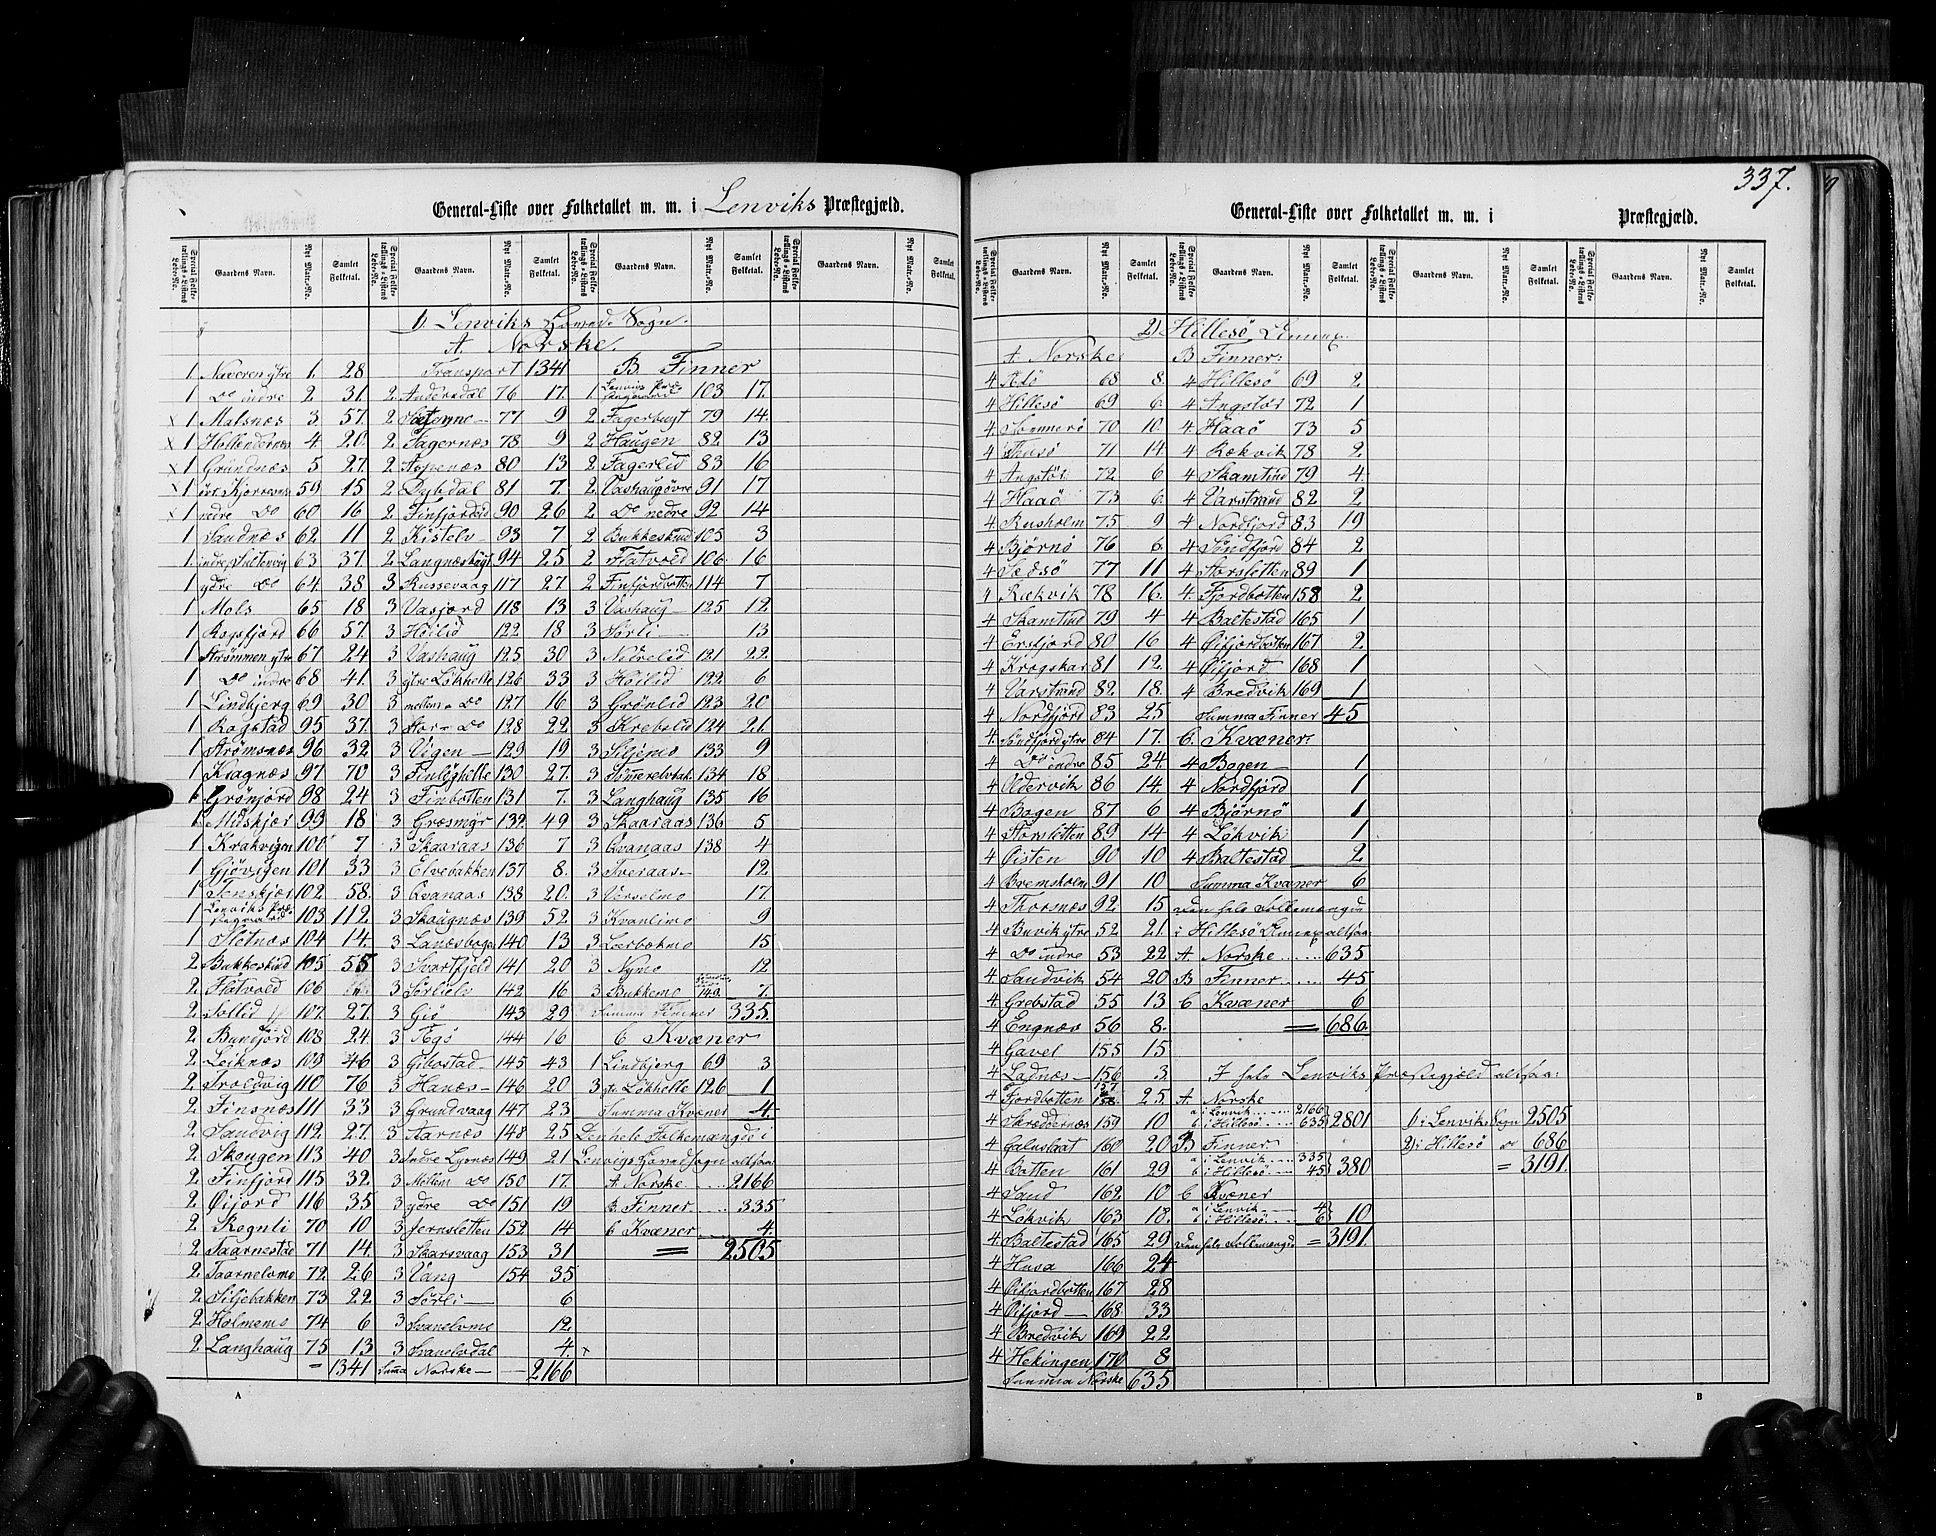 337.
General-Liste over Folketallet m. m. i Lenviks Præstegjæld.
Special Folketællings-Listens Løbe-No. Gaardens Navn. Nyt Matr.-No. Samlet Folketal.
1) Lenviks Hoved Sogn.
A. Norske.
1 Naveren ytre 1. 28
1 Do indre 2. 31.
x 1 Malsnæs 3. 57.
x 1 4. 20.
x 1 Grundnæs 5 27.
x 1 59 15
x 1 nedre Do 60 16
1 Sandnæs 62 11
1 indre Sultenvig 63 37.
1 ydre Do 64. 38
1 Mols 65 18
1 Rogsfjord 66 57.
1 Strømmen ytre 67 24
1 Do indre 68 41.
1 Lindbjerg 69 30
1 Rogstad 95 37.
1 Strømsnæs 96 32
1 Kragnæs 97 70
1 Grønjord 98 24
1 Midskjær 99 18
1 Krakvigen 100 7
1 Gjøvigen 101 33
1 Tenskjær 102 58.
1 Lenviks Præstegaard 103 112.
1 Sletnæs 104 14.
2 Bukkeskind 105 55
2 Flatvold 106
2 Sollid 107 27.
2 Bundjord 108 24.
2 Leiknæs 109 46
2 Troldvig 110 76
2 Finsnæs 111 33
2 Sandvig 112 27.
2 Skougen 113 40
2 Finfjord 115 32.
2 Øijord 116 35
2 Skognli 70 10
2 Taarnestad 71 14.
2 Taarnelvmo 72 26
2 Siljebakken 73 22.
2 Holmemo 74 6
2 Langhaug 75 13
= 1341
Transport 1341
2. Andersdal 76 17.
2 77 9
2. Fagernæs 78 9
2. Aspenæs 80 13
2 Dybdal 81 7.
2 Finfjordeid 90 26
2 Kistelv 93 7
2 Langnæsbugt 94 25
3 Russevaag 117 27
3 Vasjord 118 13
3 Høilid 122 18
3 Vashaug 125 30
3 ytre Løkhelle 126 33
3 mellem Do 127 16
3 Stor Do 128 22
3 Vigen 129 19
3 Finlyghille 130 27.
3 Finbotten 131 7.
3 Græsmyr 132 49
3 Skaaraas 136 7
3 Elvebakken 137 8.
3 Qvanaas 138 20.
3 Skaugnæs 139 52.
3 Lanæsbogen 140 13
3 Svartfjeld 141 20
3 Sørlielv 142 16
3 Gio 143 29
3 144 16
3 Gibostad 145 43
3 Hanæs 146 20
3 Grundvaag 147 23
3 Aarnæs 148 25
3 Indre Lysnæs 149 21
3 Mellem Do 150 17.
3 ydre Do 151 19
3 Jernsletten 152 14
3 Skarsvaag 153 31
3 Vang 154 35
3 Sørli 6
3 Svanelvmo 12.
3 Svanelvdal 4. x
Summa Norske 2166
B. Finner
1 Lenviks Præstegaard 103 17.
2 Fagerbugt 79 14.
2 Haugen 82 13
2 Fagerlid 83 16
2. Vashaug øvre 91 17
2 Do nedre 92 14
2 Bukkeskind 105 3
2 Flatvold 106. 16
2 Finfjordbotten 114 7
3 Vashaug 125 12.
3 Sørli 13
3 Nedrelid 121 22.
3 Høilid 122 6
3 Grønlid 123 20
3 Krebslid 124 21.
3 Siljemo 133 9
3 Sømmerelvbak. 134 18
3 Langhaug 135 16
3 Skaaraas 136 5
3 Qvanaas 138 4
3 Tveraas 12.
3 Verselmo 17.
3 Kvanlimo 9
3 Leerbækmo 15
3 Nymo 12
3 Bukkemo 140. 7.
Summa Finner 335.
C Kvæner
1 Lindbjerg 69 3
3 ytre Løkhelle 126 1
Summa Kvæner 4.
Den hele Folkemængde i
Lenvigs Hovedsogn altsaa:
A. Norske .... 2166
B. Finner .... 335
C Kvæner 4
= 2505
A
General-Liste over Folketallet m. m. i Præstegjæld.
Special Folketællings-Listens Løbe-No. Gaardens Navn. Nyt Matr.-No. Samlet Folketal.
2) Hillesö Annex.
A Norske
4 68 8.
4 Hillesö 69 6.
4 Sommerö 70 10.
4 Tusö 71 14.
4 Angstör 72 6
4 Haaö 73 6.
4 Rusholm 75 9
4 Bjørnö 76 6.
4 Sedsö 77 11
4 Rækvik 78 16.
4 Skamtind 79 4
4 Ersfjord 80 16
4 Krogskar 81 12.
4 Varstrand 82 18.
4 Nordfjord 83 25.
4. Sördfjord ytre 84 17.
4 Do indre 85 24.
4 Oldervik 86 14.
4 Bogen 87 6
4 Storsletten 89 14
4 Øisten 90 10
4 Bremsholm 91 10
4 Thorsnæs 92. 15
4 Buvik ytre 52 21.
4 Do indre 53 22
4. Sandvik 54 20
4. Grebstad 55 13
4 Engnæs 56 8.
4 Gavel 155 15
4 Ladnæs 156 3
4 Fjordbotten 157 25.
4 Skreddernæs 159 10
4 Galnslaat 160 20
4 Botten 161 29
4 Sand 162 10
4 Løkvik 163 18.
4 Baltestad 165 29
4 Husa 166 24
4 Øifjordbotten 167 28
4 Øifjord 168 33
4 Bredvik 169 22
4 Hekingen 170 8
Summa Norske 635
B Finner:
4 Hillesö 69 2
4 Angstör 72 1
4. Haaö 73 5
4 Rækvik 78 2
4 Skamtind 79 4.
4 Varstrand 82 2
4 Nordfjord 83 19
4 Söndfjord 84 2
4 Storsletten 89 1
4 Fjordbotten 158 2
4 Baltestad 165 1
4 Øifjordbotten 167 2
4 Øifjord 168 1
4 Bredvik 169 1
Summa Finner 45
C. Kvæner:
4 Bogen 1
4 Nordfjord 1
4 Bjørnö 1
4 Løkvik 1
4 Baltestad 2
Summa Kvæner 6
Den hele Folkemængde
i Hillesö Annex altsaa:
A Norske ..... 635
B Finner .... 45
C Kvæner 6
= 686.
I hele Lenviks Præstegjæld altsaa:
A. Norske
a i Lenvik ..... 2166
b i Hillesö .... 635 } 2801
B Finner
a i Lenvik .... 335
b i Hillesö .... 45 } 380
C Kvæner
a i Lenvik 4
b i Hillesö .... 6 } 10
Den hele Folkemængde = 3191.
1) i Lenviks Sogn 2505
2) i Hillesö Do 686
= 3191.
B